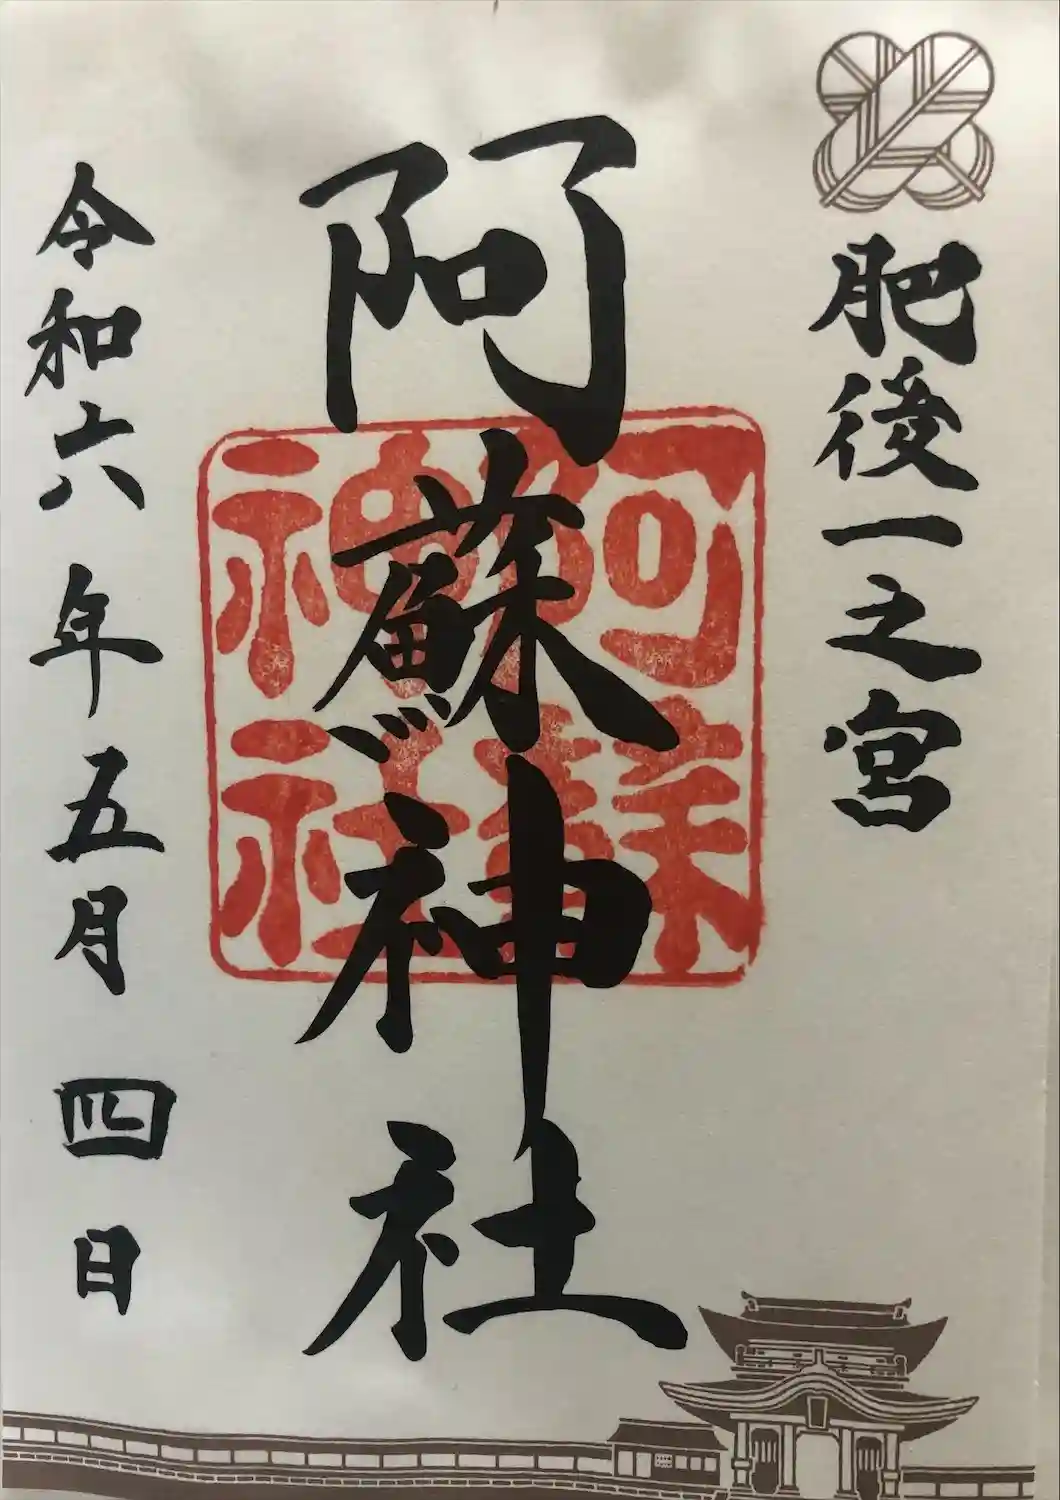 肥後一之宮
阿蘇神社
阿蘇神社
令和六年五月四日